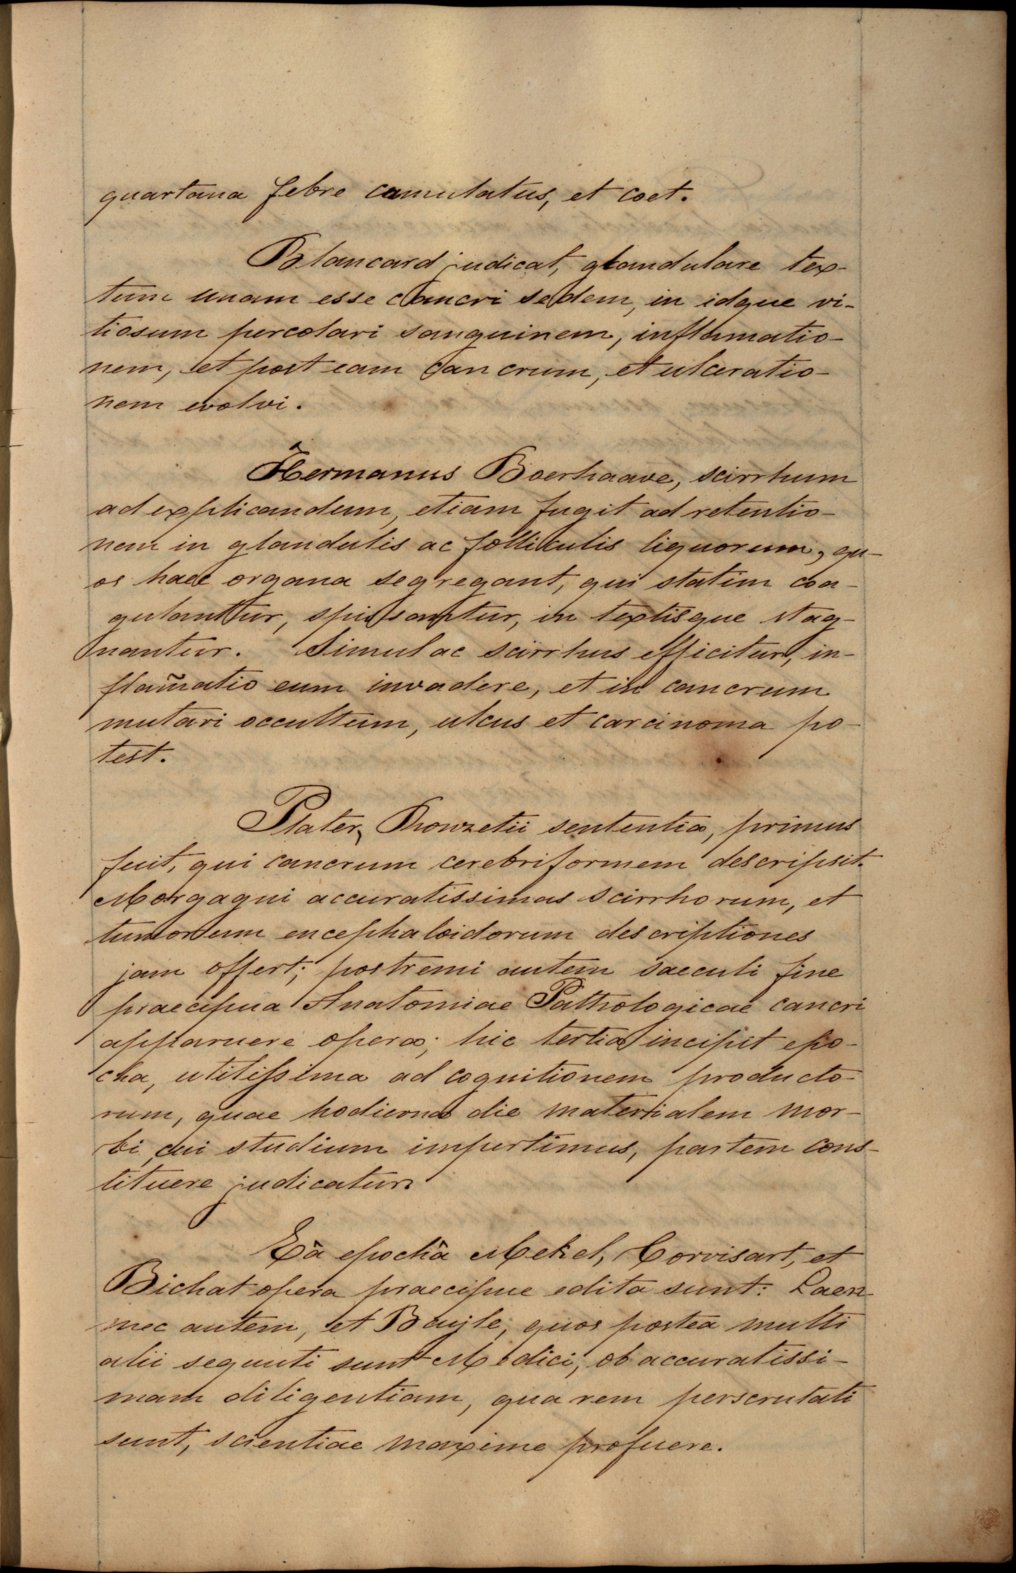 quartana febre camulatus, et coet.
Blancard judicat, glandulare tex-
tum unam esse cancri sedem, in idque vi-
tiosum percolari sanguinem, inflamatio-
nem, et post eam cancrum, et ulceratio-
nem evolvi.
Hermanus Boerhaave, scirrhum
ad explicandum, etiam fugit ad retentio-
nem in glandulis ac folliculis liquorum, qu-
os haec organa segregant, qui statim coa-
gulantur, spissantur, in textisque stag-
nantur. Simul ac scirrhus efficitur, in-
flam̃atio eum invadere, et in cancrum
mutari occultum, ulcus et carcinoma po-
test.
Plater, Rouzetii sententia, primus
fuit, qui cancrum cerebriformem descripsit.
Morgagni accuratissimas scirrhorum, et
tumorum encephaloidorum descriptiones
jam offert; postremi autem saeculi fine
praecipua Anatomiae Pathologicae cancri
apparuere opera; hic tertia incipit epo-
cha, utilissima ad cognitionem producto-
rum, quae hodierna die materialem mor-
bi, cui studium impertimus, partem cons-
tituere judicatur.
Eâ epochâ Mekel, Corvisart, et
Bichat opera praecipue edita sunt: Laen-
nec autem, et Bayle, quos postea multi
alii sequuti sunt Medici, ob accuratissi-
mam diligentiam, qua rem perscrutati
sunt, scientiae maxime profuere.